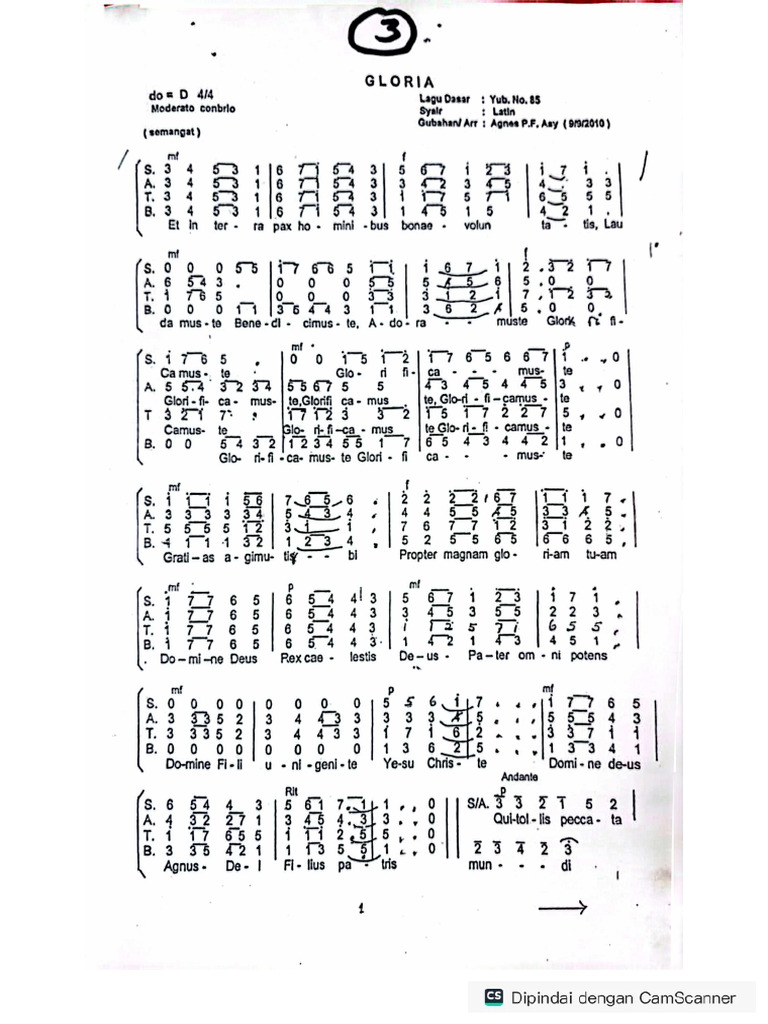 3
GLORIA
do = D 4/4
Moderato conbrio
(semangat)
Lagu Dasar : Yub. No. 85
Syair : Latin
Gubahan/Arr : Agnes P.F. Asy (9/9/2010)
mf f
S. 3 4 5 3 1 | 6 7 1 5 4 3 | 5 6 7 1 2 3 | 1 7 1 .
A. 3 4 5 3 1 | 6 7 1 5 4 3 | 3 4 2 3 4 5 | 4 . 3 3
T. 3 4 5 3 1 | 6 7 1 5 4 3 | 1 1 7 5 7 1 | 6 5 5 5
B. 3 4 5 3 1 | 6 7 1 5 4 3 | 1 4 5 1 5 | 4 2 1 .
Et in ter - ra pax ho - mini - bus bonae volun ta - tis, Lau
mf f
S. 0 0 0 5 5 | 1 7 6 6 5 1 1 | 1 6 7 1 | 2 . 3 2 1 7
A. 6 5 4 3 .
T. 1 7 6 5
B. 0 0 0 1 1 | 3 5 4 4 3 1
da mus - te Bene - di - cimus - te, A - do - ra - - muste Glori, fi -
mf p
S. 1 7 6 5 . | 0 0 1 5 1 2 | 1 7 6 5 6 6 7 | 1 . . 0
Ca mus - te Glo - ri fi - ca - - - mus- te
A. 5 5 4 3 2 3 4 | 5 5 6 7 5 5 | 4 3 4 5 4 4 5 | 3 . . 0
Glori - fi - ca - mus- te, Glorifi ca - mus te, Glo - ri - fi - camus - te
T 3 2 1 7 . | 1 7 1 2 3 3 2 | 1 5 1 7 2 2 7 | 5 . . 0
Camus- te Glo- ri- fi - ca - mus te Glo - ri - fi - camus - te
B. 0 0 5 4 3 2 | 1 2 3 4 5 5 1 7 | 6 5 4 3 4 4 2 | 1 . . 0
Glo - ri - fi - ca- mus- te Glori - fi ca - - - mus- te
mf f
S. 1 1 1 1 5 6 | 7 6 5 6 . | 2 2 2 2 1 6 7 | 1 1 1 7 .
A. 3 3 3 3 3 4 | 5 4 3 4 .
T. 5 5 5 5 1 2 | 3 1 1 . | 7 6 7 7 1 2 | 3 1 2 2 .
B. 4 1 1 1 3 2 | 1 2 3 4 . | 5 2 5 5 6 5 | 6 6 6 5 .
Grati - as a - gimu - tis - - bi Propter magnam glo - ri-am tu-am
mf p mf
S. 1 7 7 6 5 | 6 5 4 4 3 | 5 6 7 1 2 3 | 1 7 1 .
A. 1 7 7 6 5 | 6 5 4 4 3 | 3 4 5 3 5 5 | 2 2 3 .
T. 1 7 7 6 5 | 6 5 4 4 3 | 1 1 2 5 7 1 | 6 5 5 .
B. 1 7 7 6 5 | 6 5 4 4 3 | 1 4 2 1 4 3 | 4 5 1 .
Do - mi - ne Deus Rex cae - lestis De - us - Pa - ter om - ni potens
mf p mf
S. 0 0 0 0 | 0 0 0 0 | 5 5 6 1 | 7 . . . | 1 7 7 6 5
A. 3 3 3 5 2 | 3 4 4 3 3 | 3 3 3 4 | 5 . . . | 5 5 5 4 3
T. 3 3 3 5 2 | 3 4 4 3 3 | 1 7 1 6 | 2 . . . | 3 3 7 1 1
B. 0 0 0 0 | 0 0 0 0 | 1 3 6 2 | 5 . . . | 1 3 3 4 1
Do-mine Fi - li u - ni - geni - te Ye-su Chris - te Domi - ne de-us
Rit Andante
p
S. 6 5 4 4 3 | 5 6 1 7 . 1 | 1 . . 0 || S/A. 3 3 2 1 5 2
A. 4 3 2 2 7 1 | 3 4 5 4 . 3 | 3 . . 0 || Qui-tol - lis pecca - ta
T. 1 1 7 6 5 5 | 1 1 1 2 . 5 | 5 . . 0
B. 3 3 5 4 2 1 | 1 3 5 5 | 1 . . 0 || 2 3 4 2 3
Agnus - De - I Fi - lius pa - tris mun - - - di
1
CS Dipindai dengan CamScanner